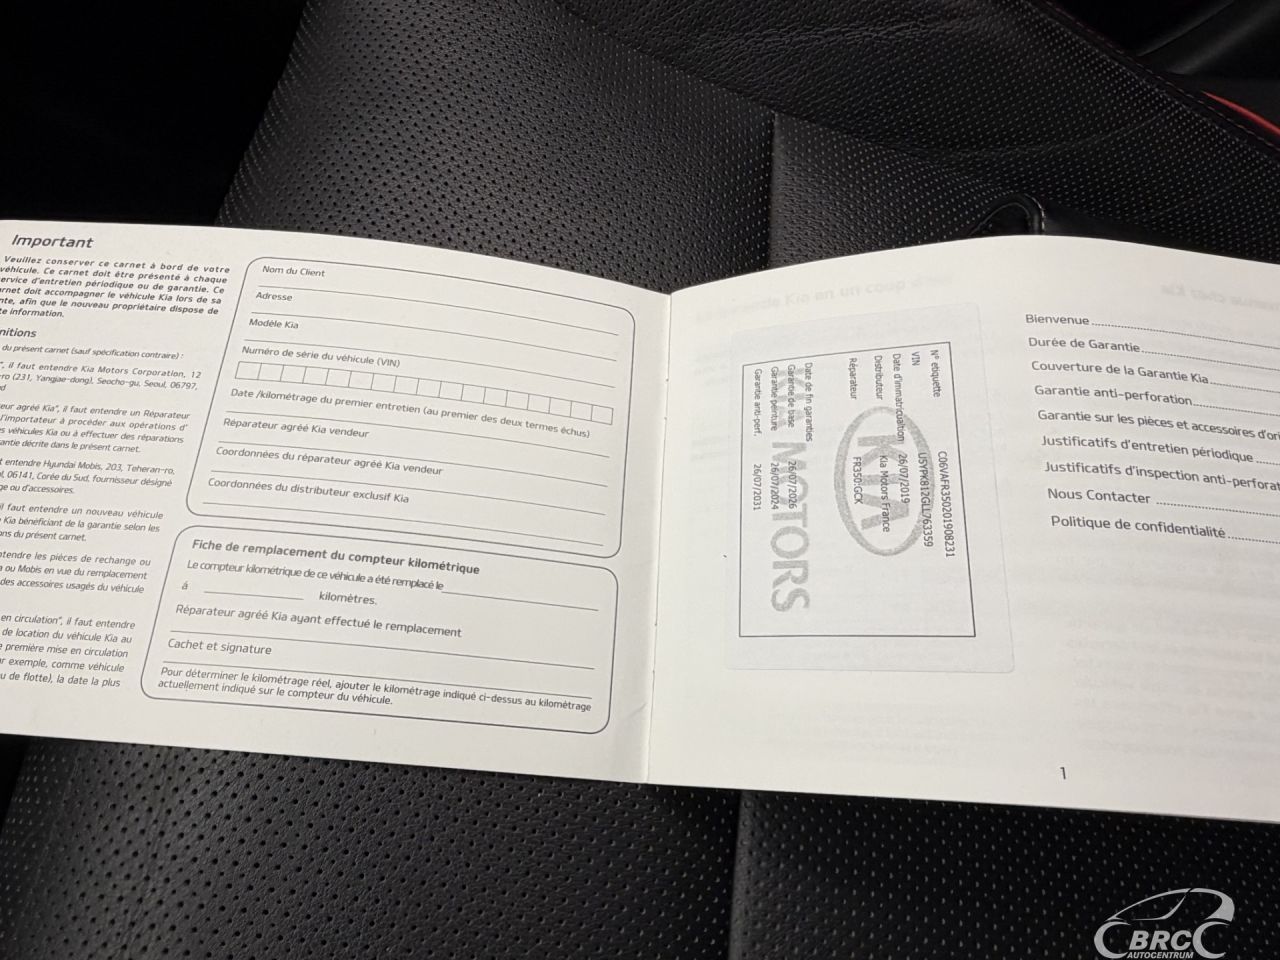 Important
Veuillez conserver ce carnet à bord de votre
véhicule. Ce carnet doit être présenté à chaque
service d'entretien périodique ou de garantie. Ce
carnet doit accompagner le véhicule Kia lors de sa
nte, afin que le nouveau propriétaire dispose de
te information.
nitions
du présent carnet (sauf spécification contraire) :
", il faut entendre Kia Motors Corporation, 12
ro (231, Yangjae-dong), Seocho-gu, Seoul, 06797,
eur agréé Kia", il faut entendre un Réparateur
l'importateur à procéder aux opérations d'
s véhicules Kia ou à effectuer des réparations
antie décrite dans le présent carnet.
t entendre Hyundai Mobis, 203, Teheran-ro,
l, 06141, Corée du Sud, fournisseur désigné
ge ou d'accessoires.
il faut entendre un nouveau véhicule
Kia bénéficiant de la garantie selon les
ons du présent carnet.
ntendre les pièces de rechange ou
a ou Mobis en vue du remplacement
des accessoires usagés du véhicule
en circulation", il faut entendre
de location du véhicule Kia au
e première mise en circulation
r exemple, comme véhicule
u de flotte), la date la plus
Nom du Client
Adresse
Modèle Kia
Numéro de série du véhicule (VIN)
Date /kilométrage du premier entretien (au premier des deux termes échus)
Réparateur agréé Kia vendeur
Coordonnées du réparateur agréé Kia vendeur
Coordonnées du distributeur exclusif Kia
Fiche de remplacement du compteur kilométrique
Le compteur kilométrique de ce véhicule a été remplacé le
à kilomètres.
Réparateur agréé Kia ayant effectué le remplacement
Cachet et signature
Pour déterminer le kilométrage réel, ajouter le kilométrage indiqué ci-dessus au kilométrage
actuellement indiqué sur le compteur du véhicule.
N° etiquette C06VAFR350201908231
VIN U5YPK812GLL763359
Date d'immatriculation 26/07/2019
Distributeur Kia Motors France
Réparateur FR350!GCK
Date de fin garanties
Garantie de base 26/07/2026
Garantie peinture 26/07/2024
Garantie anti-perf. 26/07/2031
KIA
KIA MOTORS
Bienvenue
Durée de Garantie
Couverture de la Garantie Kia
Garantie anti-perforation
Garantie sur les pièces et accessoires d'ori
Justificatifs d'entretien périodique
Justificatifs d'inspection anti-perforat
Nous Contacter
Politique de confidentialité
1
BRC
AUTOCENTRUM